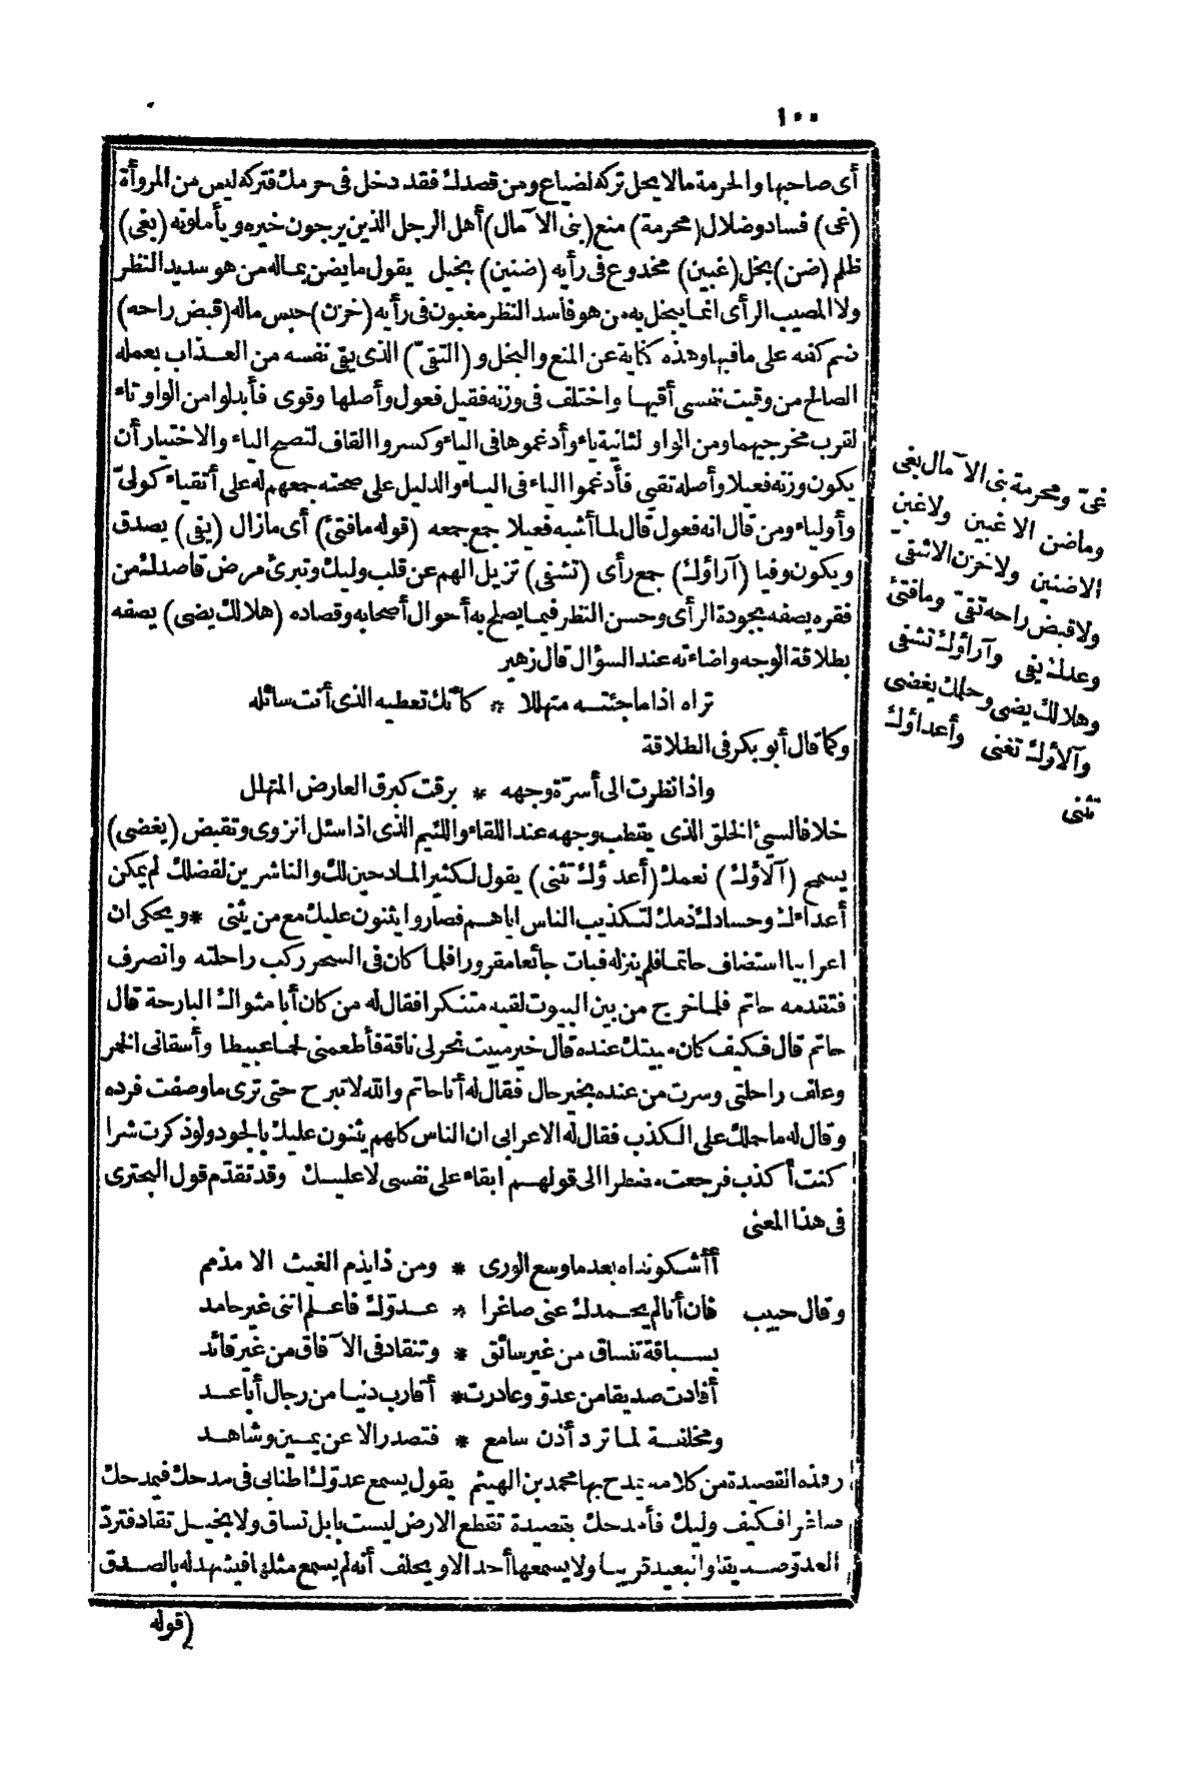 ١٠٠
أى صاحبها والحرمة مالا يحل تركه لضياع ومن قصدك فقد دخل فى حرمك فتركه ليس من المروأة
(غى) فساد وضلال (محرمة) منع (بنى الآمال) أهل الرجل الذين يرجون خيره ويأملونه (بغى)
ظلم (ضن) بخل (غبين) مخدوع فى رأيه (ضنين) بخيل يقول ما يضن بماله من هو سديد النظر
ولا المصيب الرأى انما يبخل به من هو فاسد النظر مغبون فى رأيه (خزن) حبس ماله (قبض راحه)
ضم كفه على ما فيها وهذه كناية عن المنع والبخل و(التقىّ) الذى يقى نفسه من العذاب بعمله
الصالح من وقيت نفسى أقيها واختلف فى وزنه فقيل فعول وأصلها وقوى فأبدلوا من الواو تاء
لقرب مخرجيهما ومن الواو لثانية ياء وأدغموها فى الياء وكسروا القاف لتصح الياء والاختيار أن
يكون وزنه فعيلا وأصله تقيى فأدغموا الياء فى الياء والدليل على صحته جمعهم له على أتقياء كولىّ
وأولياء ومن قال انه فعول قال لما أشبه فعيلا جمع جمعه (قوله ما فتئ) أى مازال (يفى) يصدق
ويكون وفيا (آراؤك) جمع رأى (تشفى) تزيل الهم عن قلب وليك وتبرئ مرض قاصدك من
فقره يصفه بجودة الرأى وحسن النظر فيما يصلح به أحوال أصحابه وقصاده (هلالك يضى) يصفه
بطلاقة الوجه واضاءته عند السؤال قال زهير
تراه اذا ما جئتـه متهللا * كأنك تعطيه الذى أنت سائله
وكما قال أبو بكر فى الطلاقة
واذا نظرت الى أسرّة وجهه * برقت كبرق العارض المتهلل
خلافا لسيئ الخلق الذى يقطب وجهه عند اللقاء واللئيم الذى اذا سئل انزوى وتقبض (يغضى)
يسمح (آلاؤك) نعمك (أعد ؤك تثنى) يقول لكثير المادحين لك والناشرين لفضلك لم يمكن
أعداءك وحسادك ذمك لتكذيب الناس اياهم فصاروا يثنون عليك مع من يثنى * ويحكى ان
اعرابيا استضاف حاتما فلم ينزله فبات جائعا مقرورا فلما كان فى السحر ركب راحلته وانصرف
فتقدمه حاتم فلما خرج من بين البيوت لقيه متنكرا فقال له من كان أبا مثواك البارحة قال
حاتم قال فكيف كان مبيتك عنده قال خير مبيت نحر لى ناقة فأطعمنى لحما عبيطا وأسقانى الخمر
وعلف راحلتى وسرت من عنده بخير حال فقال له أنا حاتم والله لا تبرح حتى ترى ما وصفت فرده
وقال له ما حملك على الكذب فقال له الاعرابى ان الناس كلهم يثنون عليك بالجود ولو ذكرت شرا
كنت أكذب فرجعت مضطرا الى قولهـم ابقاء على نفسى لا عليـك وقد تقدّم قول البحترى
فى هذا المعنى
أأشكو نداه بعد ما وسع الورى * ومن ذا يذم الغيث الا مذمم
وقال حبيب فان أنا لم يحمدك عنى صاغرا * عـدوّك فاعلم اننى غير حامد
بسباقة تنساق من غير سائق * وتنقاد فى الآفاق من غير قائد
أفادت صديقا من عدوّ وغادرت * أقارب دنيا من رجال أباعـد
ومحلفـة لما ترد أذن سامع * فتصدر الا عن يمـين وشاهـد
وهذه القصيدة من كلامه يمدح بها محمد بن الهيثم يقول يسمع عدوّك اطنابى فى مدحك فيمدحك
صاغرا فكيف وليك فأمدحك بقصيدة تقطع الارض ليست بابل تساق ولا بخيـل تقاد فتردّ
العدوّ صديقا والبعيد قريبا ولا يسمعها أحد الا ويحلف أنه لم يسمع مثلها فيشهد له بالصـدق
(قوله
غىّ ومحرمة بنى الآمال بغى
وماضن الا غبين ولا غبن
الاضنين ولا خزن الاشقى
ولا قبض راحه تقىّ وما فتئ
وعدك يفى وآراؤك تشفى
وهلالك يضى وحلمك يغضى
وآلاؤك تغنى وأعداؤك
تثنى